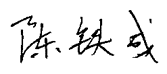 陈铁成